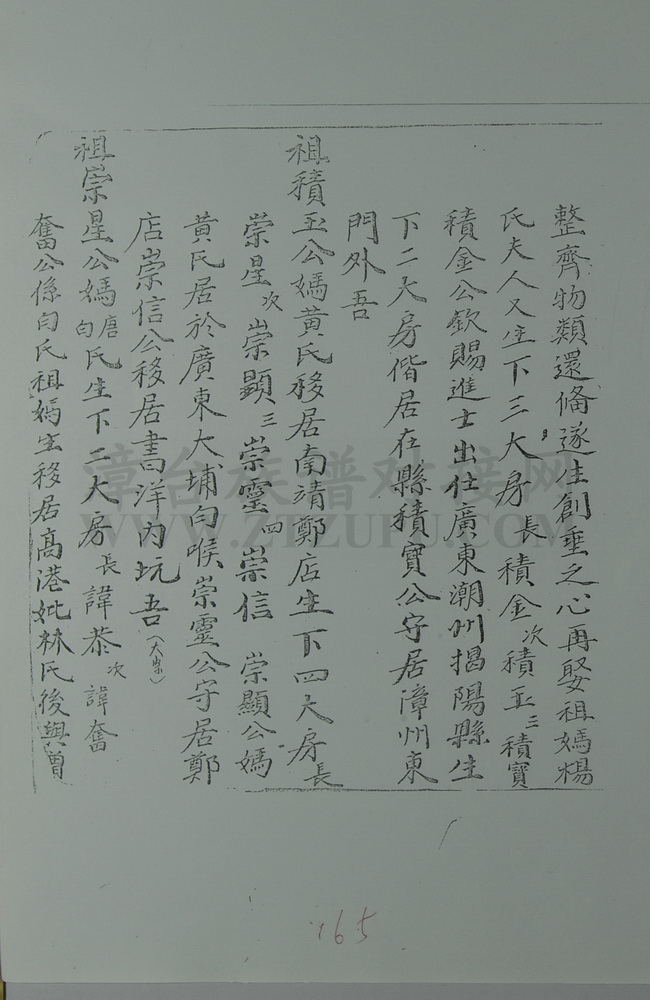 整齊物類還偹遂生創垂之心再娶祖媽楊
氏夫人又生下三大房長積金次積玉三積寶
積金公欽賜進士出仕廣東潮州揭陽縣生
下二大房偕居在縣積寶公守居漳州東
門外吾
祖積玉公媽黃氏移居南靖鄭店生下四大房長
崇星次崇顯三崇靈四崇信 崇顯公媽
黃氏居於廣東大埔白喉崇靈公守居鄭
店崇信公移居書洋內坑吾(大崇)
祖崇星公媽唐白氏生下二大房長諱恭次諱奮
奮公係白氏祖媽生移居高港妣林氏後與曾
漳台族谱对接网
WWW.ZTZUPU.COM
165